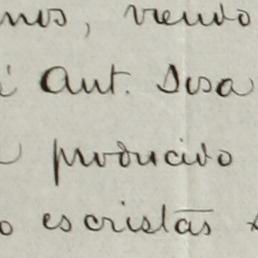 nos, viendo
Ant. Sosa
producido
escristās